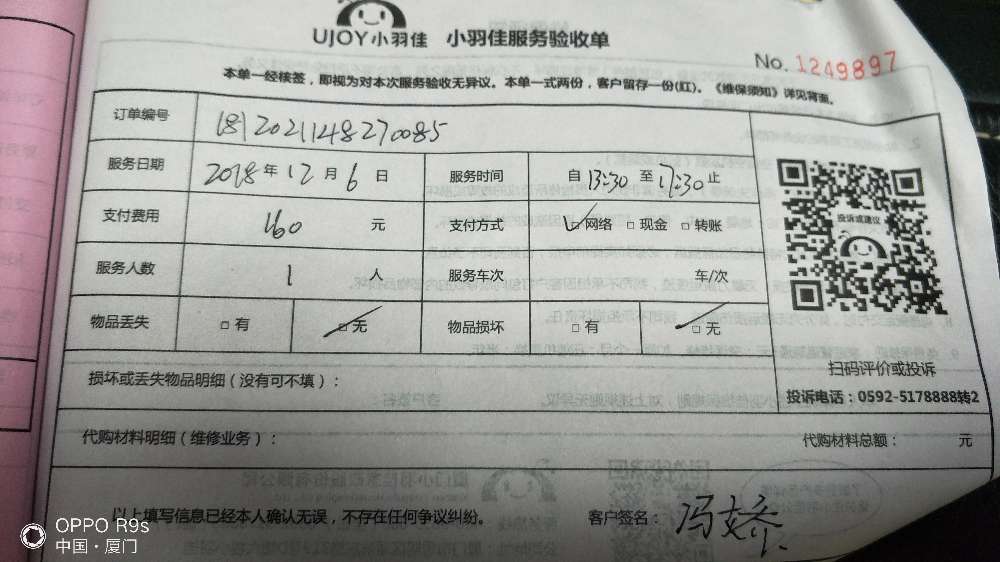 UJOY小羽佳 小羽佳服务验收单
No. 1249897
本单一经核签，即视为对本次服务验收无异议。本单一式两份，客户留存一份(红)。《维保须知》详见背面。
订单编号 181202114827 0085
服务日期 2018年12月6日 服务时间 自13:30至17:30止
支付费用 160 元 支付方式 □网络 □现金 □转账
服务人数 1 人 服务车次 车/次
物品丢失 □有 □无 物品损坏 □有 □无
投诉或建议
扫码评价或投诉
投诉电话：0592-5178888转2
损坏或丢失物品明细（没有可不填）：
代购材料明细（维修业务）： 代购材料总额： 元
以上填写信息已经本人确认无误，不存在任何争议纠纷。 客户签名：冯
OPPO R9s
中国·厦门